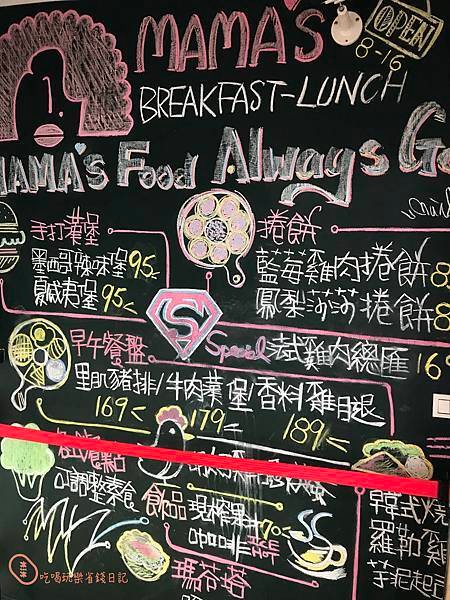 MAMA'S
OPEN
8-16
BREAKFAST-LUNCH
MAMA'S Food Always Go
手打漢堡
墨西哥辣味堡 95
夏威夷堡 95
捲餅
藍莓雞肉捲餅 8
鳳梨莎莎捲餅 8
S Special 泰式雞肉總匯 169
早午餐盤
里肌豬排/牛肉漢堡/香料雞腿
169 179 189
點
可調整素食
飲品 現榨果 70
咖啡
瑪芬塔
韓式燒
羅勒雞
芋泥起
吃喝玩樂省錢日記